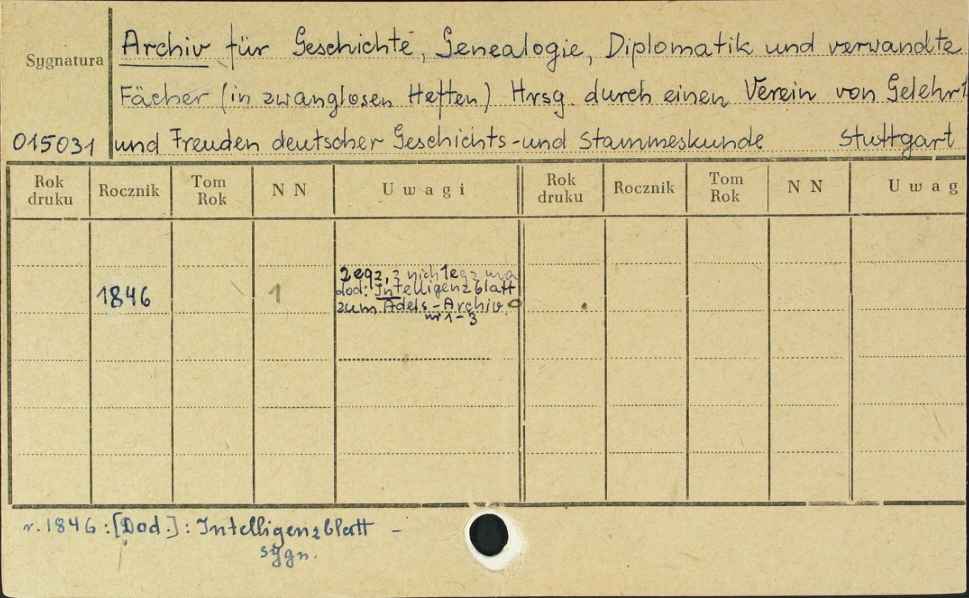 Archiv für Geschichte, Genealogie, Diplomatik und verwandte
Sygnatura
Fächer (in zwanglosen Heften) Hrsg. durch einen Verein von Gelehrt
015031 und Freuden deutscher Geschichts-und Stammeskunde Stuttgart
Rok druku Rocznik Tom Rok N N U w a g i Rok druku Rocznik Tom Rok N N U w a g
2 egz, z nich 1 egz ma
1846 1 dod: Intelligenzblatt
zum Adels-Archiv
nr 1-3
r. 1846: [Dod.]: Intelligenzblatt -
sygn.